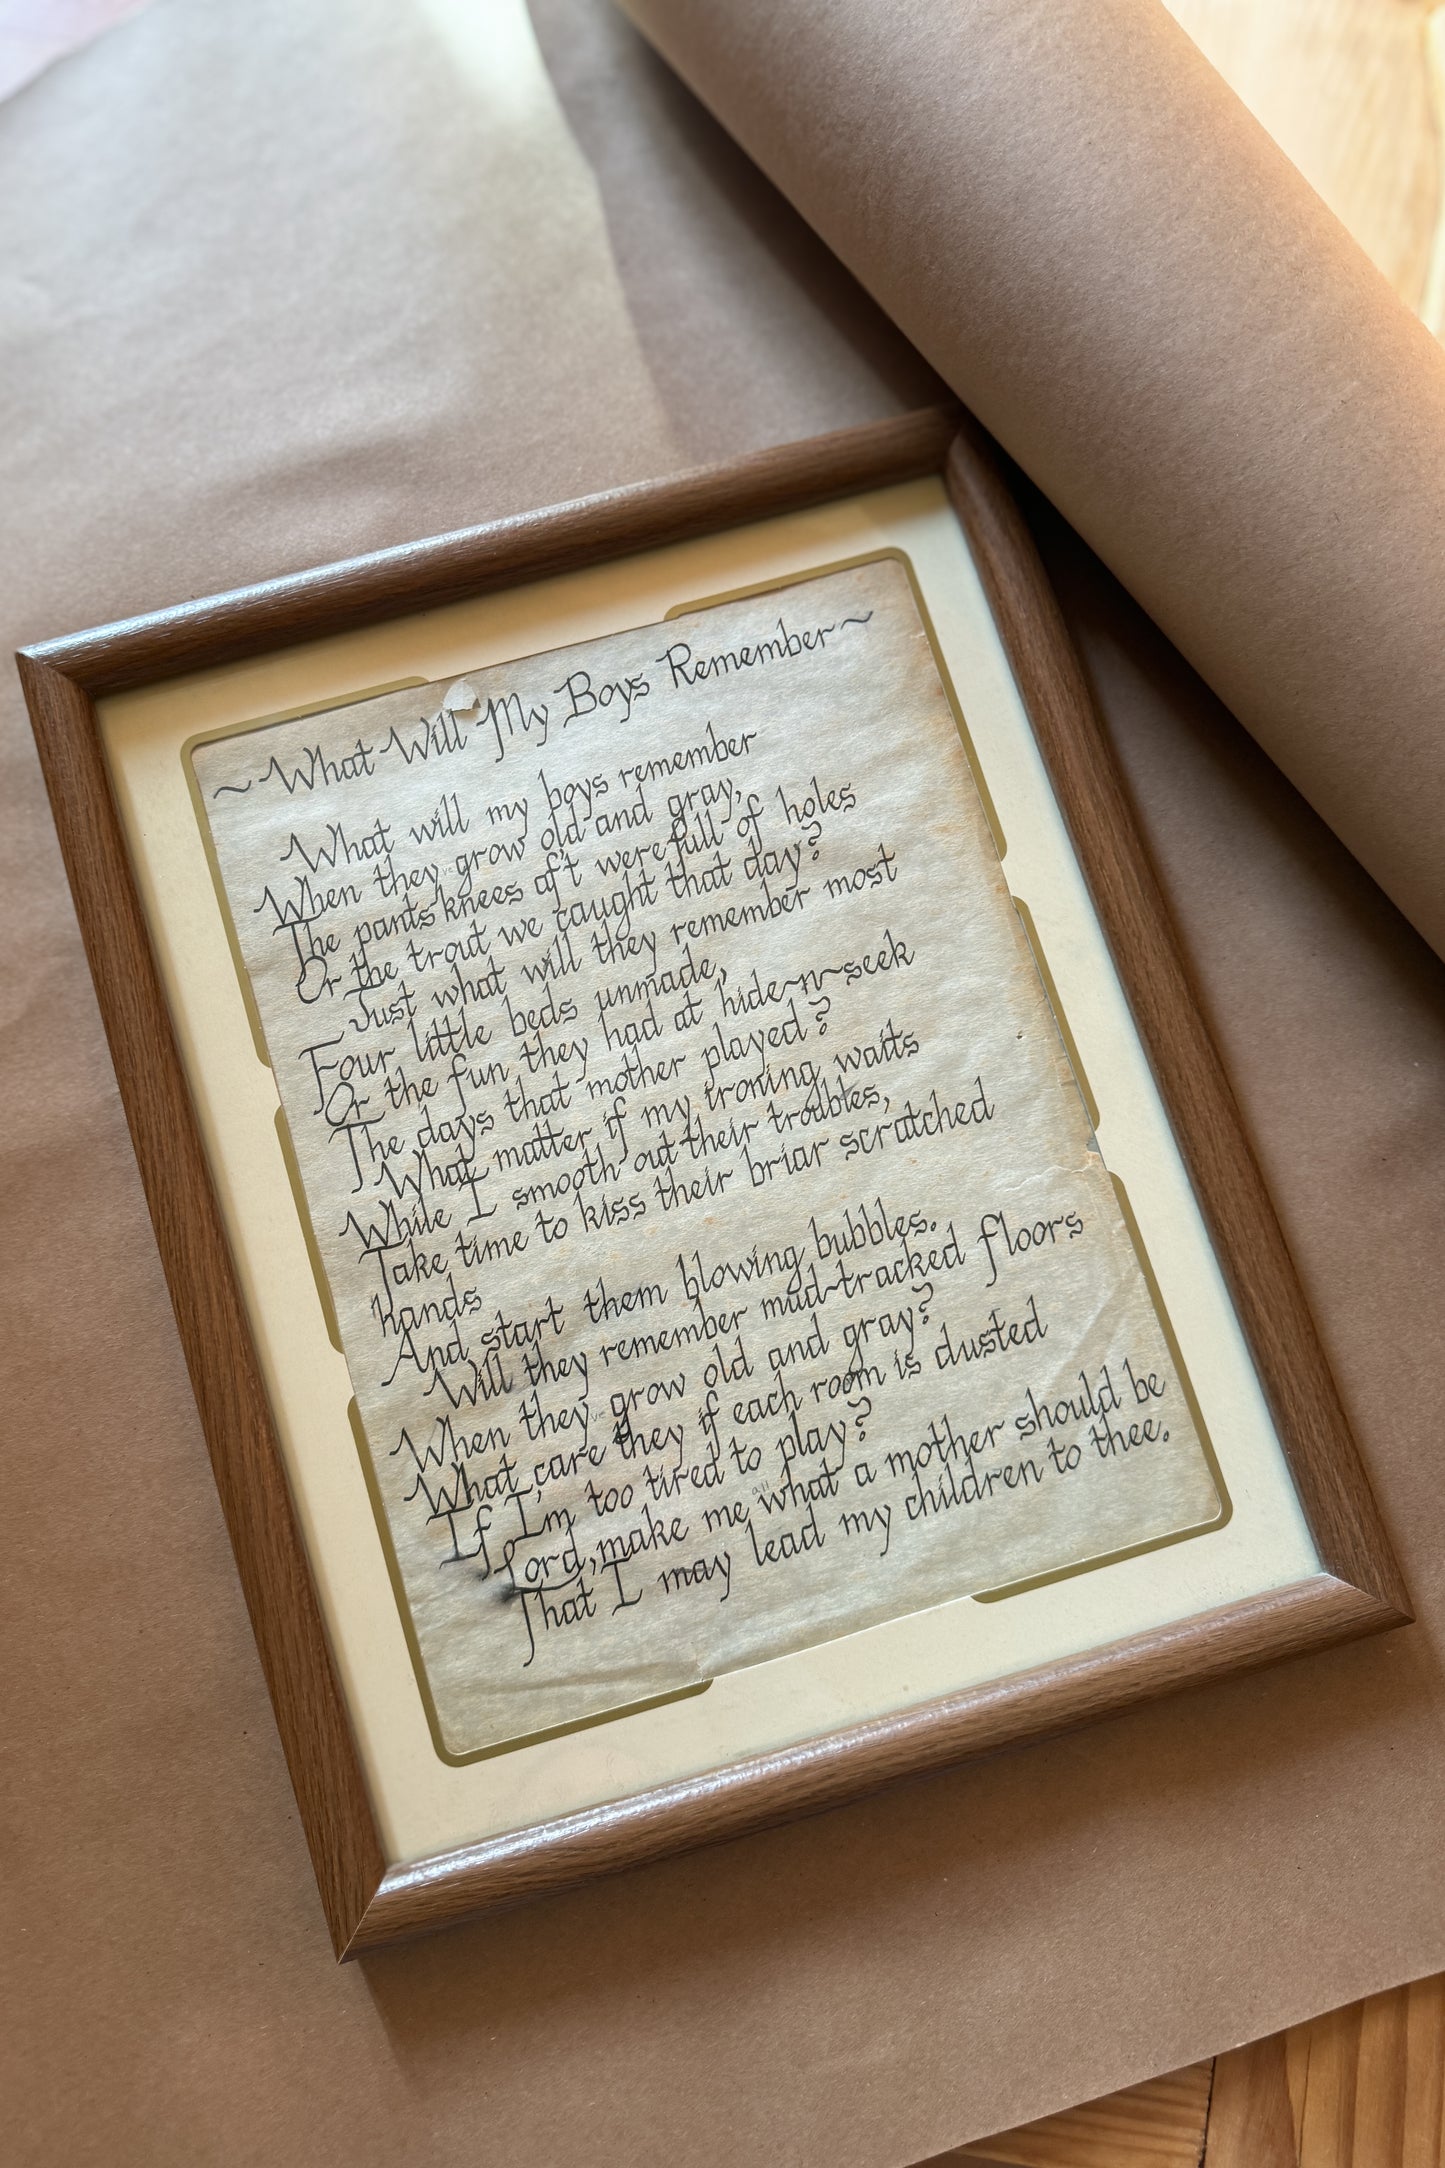 ~ What Will My Boys Remember ~
What will my boys remember
When they grow old and gray,
The pants knees oft were full of holes
Or the trout we caught that day?
Just what will they remember most
Four little beds unmade,
Or the fun they had at hide-n-seek
The days that mother played?
What matter if my ironing waits
While I smooth out their troubles,
Take time to kiss their briar scratched
hands
And start them blowing bubbles.
Will they remember mud-tracked floors
When they grow old and gray?
What care they if each room is dusted
If I'm too tired to play?
Lord, make me what a mother should be
That I may lead my children to thee.